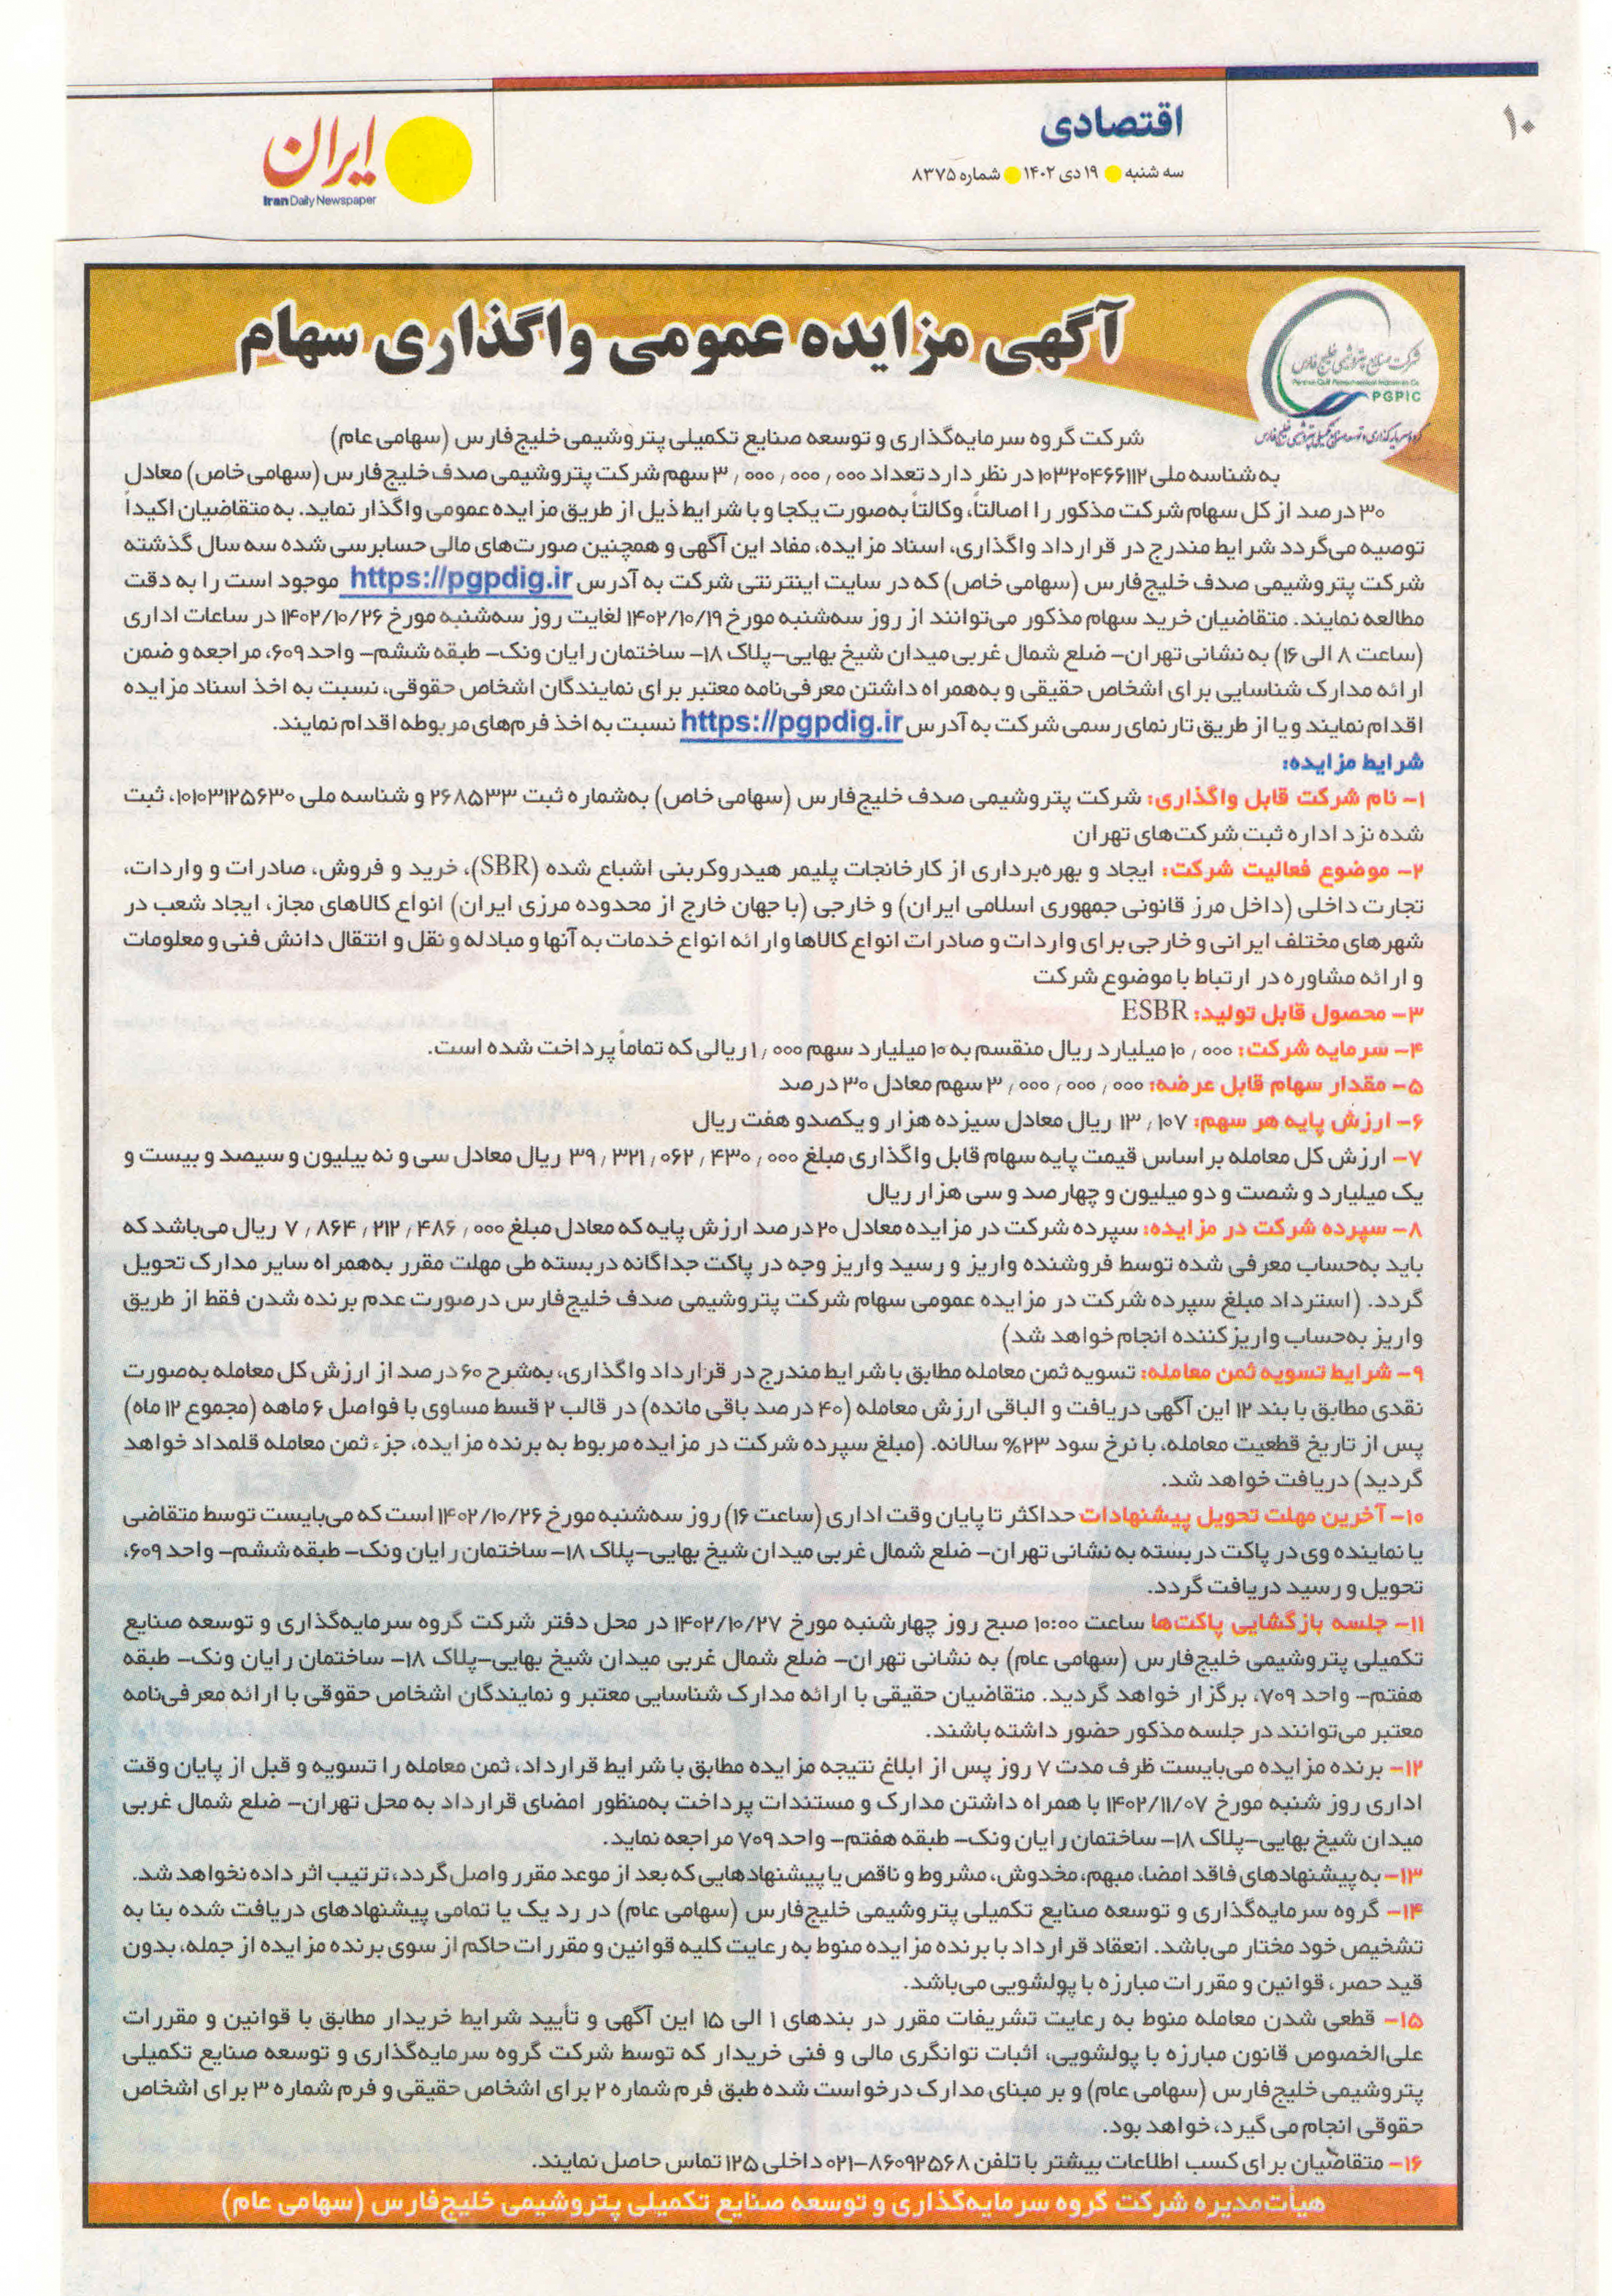 ۱۰
اقتصادی
سه شنبه ● ۱۹ دی ۱۴۰۲ ● شماره ۸۳۷۵
ایران
Iran Daily Newspaper
آگهی مزایده عمومی واگذاری سهام
شرکت صنایع پتروشیمی خلیج فارس
Persian Gulf Petrochemical Industries Co.
PGPIC
گروه سرمایه‌گذاری و توسعه صنایع تکمیلی پتروشیمی خلیج فارس
شرکت گروه سرمایه‌گذاری و توسعه صنایع تکمیلی پتروشیمی خلیج‌فارس (سهامی عام)
به شناسه ملی ۱۰۳۲۰۴۶۶۱۱۲ در نظر دارد تعداد ۳٫۰۰۰٫۰۰۰٫۰۰۰ سهم شرکت پتروشیمی صدف خلیج‌فارس (سهامی خاص) معادل
۳۰ درصد از کل سهام شرکت مذکور را اصالتاً، وکالتاً به‌صورت یکجا و با شرایط ذیل از طریق مزایده عمومی واگذار نماید. به متقاضیان اکیداً
توصیه می‌گردد شرایط مندرج در قرارداد واگذاری، اسناد مزایده، مفاد این آگهی و همچنین صورت‌های مالی حسابرسی شده سه سال گذشته
شرکت پتروشیمی صدف خلیج‌فارس (سهامی خاص) که در سایت اینترنتی شرکت به آدرس https://pgpdig.ir موجود است را به دقت
مطالعه نمایند. متقاضیان خرید سهام مذکور می‌توانند از روز سه‌شنبه مورخ ۱۴۰۲/۱۰/۱۹ لغایت روز سه‌شنبه مورخ ۱۴۰۲/۱۰/۲۶ در ساعات اداری
(ساعت ۸ الی ۱۶) به نشانی تهران- ضلع شمال غربی میدان شیخ بهایی-پلاک ۱۸- ساختمان رایان ونک- طبقه ششم- واحد ۶۰۹، مراجعه و ضمن
ارائه مدارک شناسایی برای اشخاص حقیقی و به‌همراه داشتن معرفی‌نامه معتبر برای نمایندگان اشخاص حقوقی، نسبت به اخذ اسناد مزایده
اقدام نمایند و یا از طریق تارنمای رسمی شرکت به آدرس https://pgpdig.ir نسبت به اخذ فرم‌های مربوطه اقدام نمایند.
شرایط مزایده:
۱- نام شرکت قابل واگذاری: شرکت پتروشیمی صدف خلیج‌فارس (سهامی خاص) به‌شماره ثبت ۲۶۸۵۳۳ و شناسه ملی ۱۰۱۰۳۱۲۵۶۳۰، ثبت
شده نزد اداره ثبت شرکت‌های تهران
۲- موضوع فعالیت شرکت: ایجاد و بهره‌برداری از کارخانجات پلیمر هیدروکربنی اشباع شده (SBR)، خرید و فروش، صادرات و واردات،
تجارت داخلی (داخل مرز قانونی جمهوری اسلامی ایران) و خارجی (با جهان خارج از محدوده مرزی ایران) انواع کالاهای مجاز، ایجاد شعب در
شهرهای مختلف ایرانی و خارجی برای واردات و صادرات انواع کالاها و ارائه انواع خدمات به آنها و مبادله و نقل و انتقال دانش فنی و معلومات
و ارائه مشاوره در ارتباط با موضوع شرکت
۳- محصول قابل تولید: ESBR
۴- سرمایه شرکت: ۱۰٫۰۰۰ میلیارد ریال منقسم به ۱۰ میلیارد سهم ۱٫۰۰۰ ریالی که تماماً پرداخت شده است.
۵- مقدار سهام قابل عرضه: ۳٫۰۰۰٫۰۰۰٫۰۰۰ سهم معادل ۳۰ درصد
۶- ارزش پایه هر سهم: ۱۳٫۱۰۷ ریال معادل سیزده هزار و یکصدو هفت ریال
۷- ارزش کل معامله بر اساس قیمت پایه سهام قابل واگذاری مبلغ ۳۹٫۳۲۱٫۰۶۲٫۴۳۰٫۰۰۰ ریال معادل سی و نه بیلیون و سیصد و بیست و
یک میلیارد و شصت و دو میلیون و چهارصد و سی هزار ریال
۸- سپرده شرکت در مزایده: سپرده شرکت در مزایده معادل ۲۰ درصد ارزش پایه که معادل مبلغ ۷٫۸۶۴٫۲۱۲٫۴۸۶٫۰۰۰ ریال می‌باشد که
باید به‌حساب معرفی شده توسط فروشنده واریز و رسید واریز وجه در پاکت جداگانه دربسته طی مهلت مقرر به‌همراه سایر مدارک تحویل
گردد. (استرداد مبلغ سپرده شرکت در مزایده عمومی سهام شرکت پتروشیمی صدف خلیج‌فارس درصورت عدم برنده شدن فقط از طریق
واریز به‌حساب واریزکننده انجام خواهد شد)
۹- شرایط تسویه ثمن معامله: تسویه ثمن معامله مطابق با شرایط مندرج در قرارداد واگذاری، به‌شرح ۶۰ درصد از ارزش کل معامله به‌صورت
نقدی مطابق با بند ۱۲ این آگهی دریافت و الباقی ارزش معامله (۴۰ درصد باقی مانده) در قالب ۲ قسط مساوی با فواصل ۶ ماهه (مجموع ۱۲ ماه)
پس از تاریخ قطعیت معامله، با نرخ سود ۲۳% سالانه. (مبلغ سپرده شرکت در مزایده مربوط به برنده مزایده، جزء ثمن معامله قلمداد خواهد
گردید) دریافت خواهد شد.
۱۰- آخرین مهلت تحویل پیشنهادات حداکثر تا پایان وقت اداری (ساعت ۱۶) روز سه‌شنبه مورخ ۱۴۰۲/۱۰/۲۶ است که می‌بایست توسط متقاضی
یا نماینده وی در پاکت دربسته به نشانی تهران- ضلع شمال غربی میدان شیخ بهایی-پلاک ۱۸- ساختمان رایان ونک- طبقه ششم- واحد ۶۰۹،
تحویل و رسید دریافت گردد.
۱۱- جلسه بازگشایی پاکت‌ها ساعت ۱۰:۰۰ صبح روز چهارشنبه مورخ ۱۴۰۲/۱۰/۲۷ در محل دفتر شرکت گروه سرمایه‌گذاری و توسعه صنایع
تکمیلی پتروشیمی خلیج‌فارس (سهامی عام) به نشانی تهران- ضلع شمال غربی میدان شیخ بهایی-پلاک ۱۸- ساختمان رایان ونک- طبقه
هفتم- واحد ۷۰۹، برگزار خواهد گردید. متقاضیان حقیقی با ارائه مدارک شناسایی معتبر و نمایندگان اشخاص حقوقی با ارائه معرفی‌نامه
معتبر می‌توانند در جلسه مذکور حضور داشته باشند.
۱۲- برنده مزایده می‌بایست ظرف مدت ۷ روز پس از ابلاغ نتیجه مزایده مطابق با شرایط قرارداد، ثمن معامله را تسویه و قبل از پایان وقت
اداری روز شنبه مورخ ۱۴۰۲/۱۱/۰۷ با همراه داشتن مدارک و مستندات پرداخت به‌منظور امضای قرارداد به محل تهران- ضلع شمال غربی
میدان شیخ بهایی-پلاک ۱۸- ساختمان رایان ونک- طبقه هفتم- واحد ۷۰۹ مراجعه نماید.
۱۳- به پیشنهادهای فاقد امضا، مبهم، مخدوش، مشروط و ناقص یا پیشنهادهایی که بعد از موعد مقرر واصل گردد، ترتیب اثر داده نخواهد شد.
۱۴- گروه سرمایه‌گذاری و توسعه صنایع تکمیلی پتروشیمی خلیج‌فارس (سهامی عام) در رد یک یا تمامی پیشنهادهای دریافت شده بنا به
تشخیص خود مختار می‌باشد. انعقاد قرارداد با برنده مزایده منوط به رعایت کلیه قوانین و مقررات حاکم از سوی برنده مزایده از جمله، بدون
قید حصر، قوانین و مقررات مبارزه با پولشویی می‌باشد.
۱۵- قطعی شدن معامله منوط به رعایت تشریفات مقرر در بندهای ۱ الی ۱۵ این آگهی و تأیید شرایط خریدار مطابق با قوانین و مقررات
علی‌الخصوص قانون مبارزه با پولشویی، اثبات توانگری مالی و فنی خریدار که توسط شرکت گروه سرمایه‌گذاری و توسعه صنایع تکمیلی
پتروشیمی خلیج‌فارس (سهامی عام) و بر مبنای مدارک درخواست شده طبق فرم شماره ۲ برای اشخاص حقیقی و فرم شماره ۳ برای اشخاص
حقوقی انجام می گیرد، خواهد بود.
۱۶- متقاضیان برای کسب اطلاعات بیشتر با تلفن ۸۶۰۹۲۵۶۸-۰۲۱ داخلی ۱۲۵ تماس حاصل نمایند.
هیأت‌مدیره شرکت گروه سرمایه‌گذاری و توسعه صنایع تکمیلی پتروشیمی خلیج‌فارس (سهامی عام)